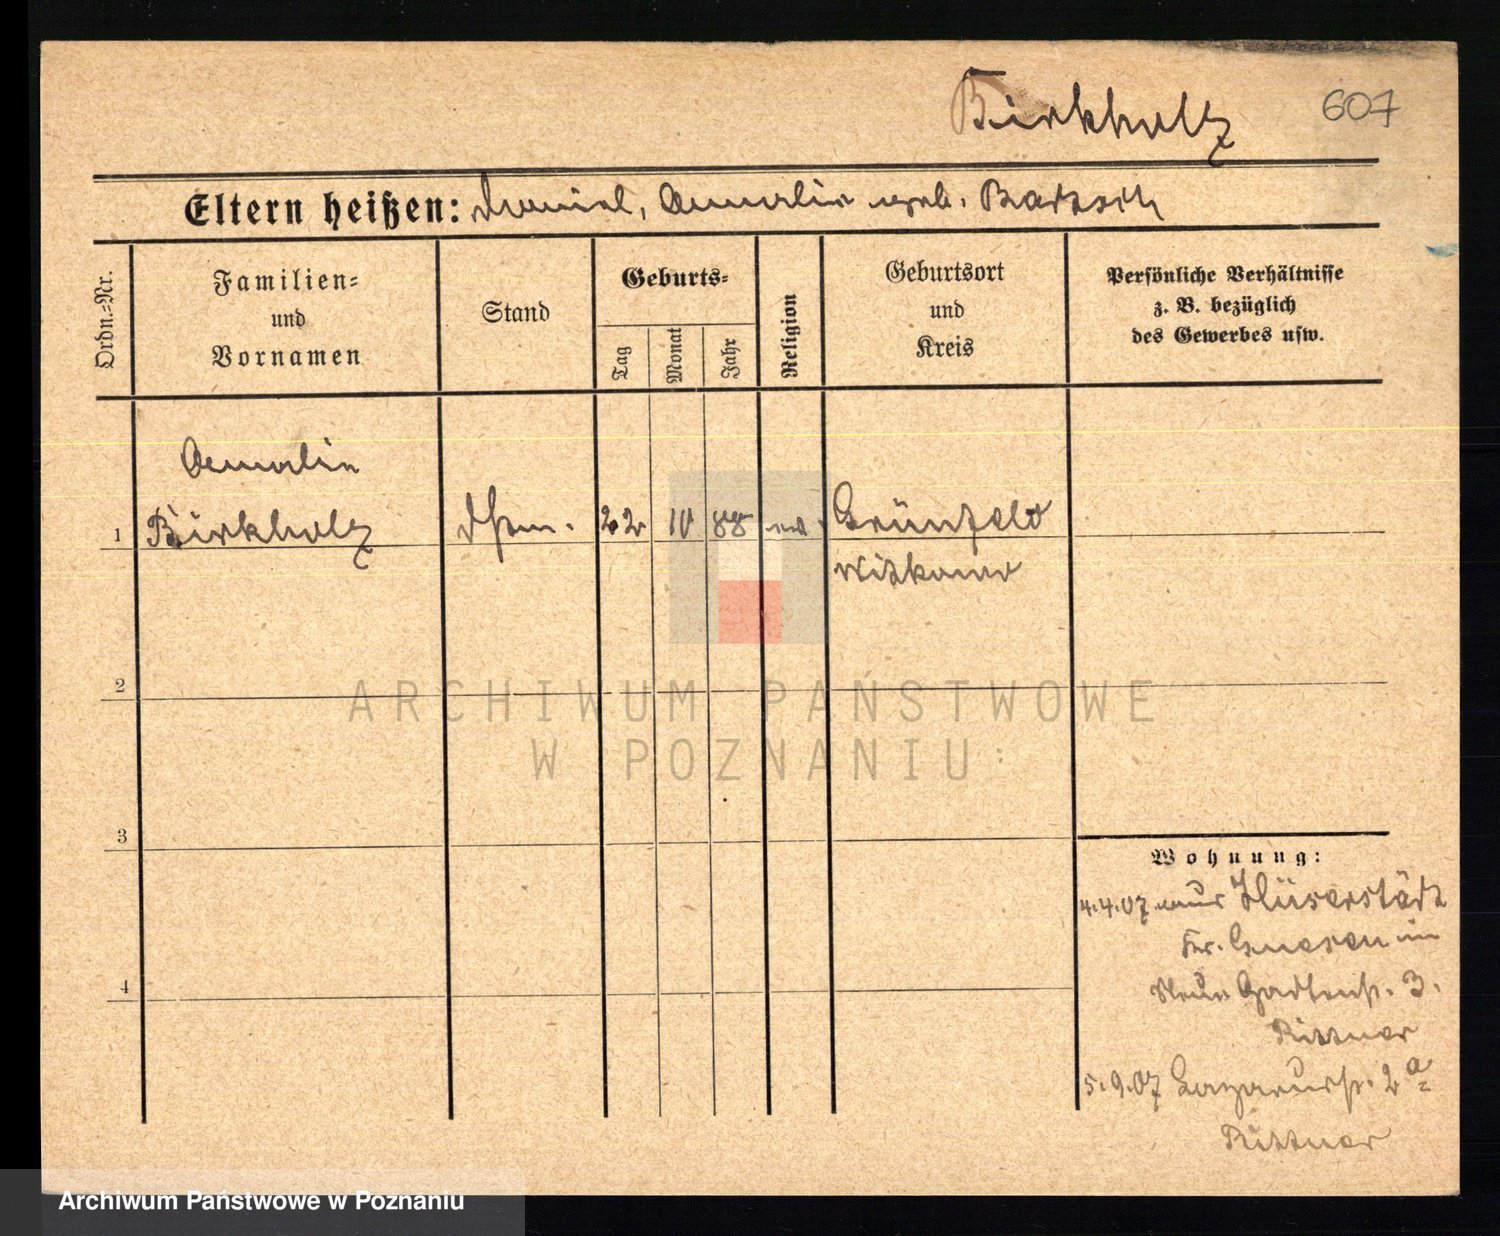 Birkholtz 607
Eltern heißen: Daniel, Amalie geb. Bartsch
Ordn.=Nr.
Familien=
und
Vornamen
Stand
Geburts=
Tag
Monat
Jahr
Religion
Geburtsort
und
Kreis
Persönliche Verhältnisse
z. B. bezüglich
des Gewerbes usw.
Amalie
1 Birkholz 22 10 88 ev. Grünfeld
Witkowo
2
ARCHIWUM PAŃSTWOWE
W POZNANIU
3
Wohnung:
4.4.07 aus
Kr. Gnesen in
4 Neue Gartenstr. 3.
Rittner
5.9.07 Lazarusstr. 2a
Rittner
Archiwum Państwowe w Poznaniu